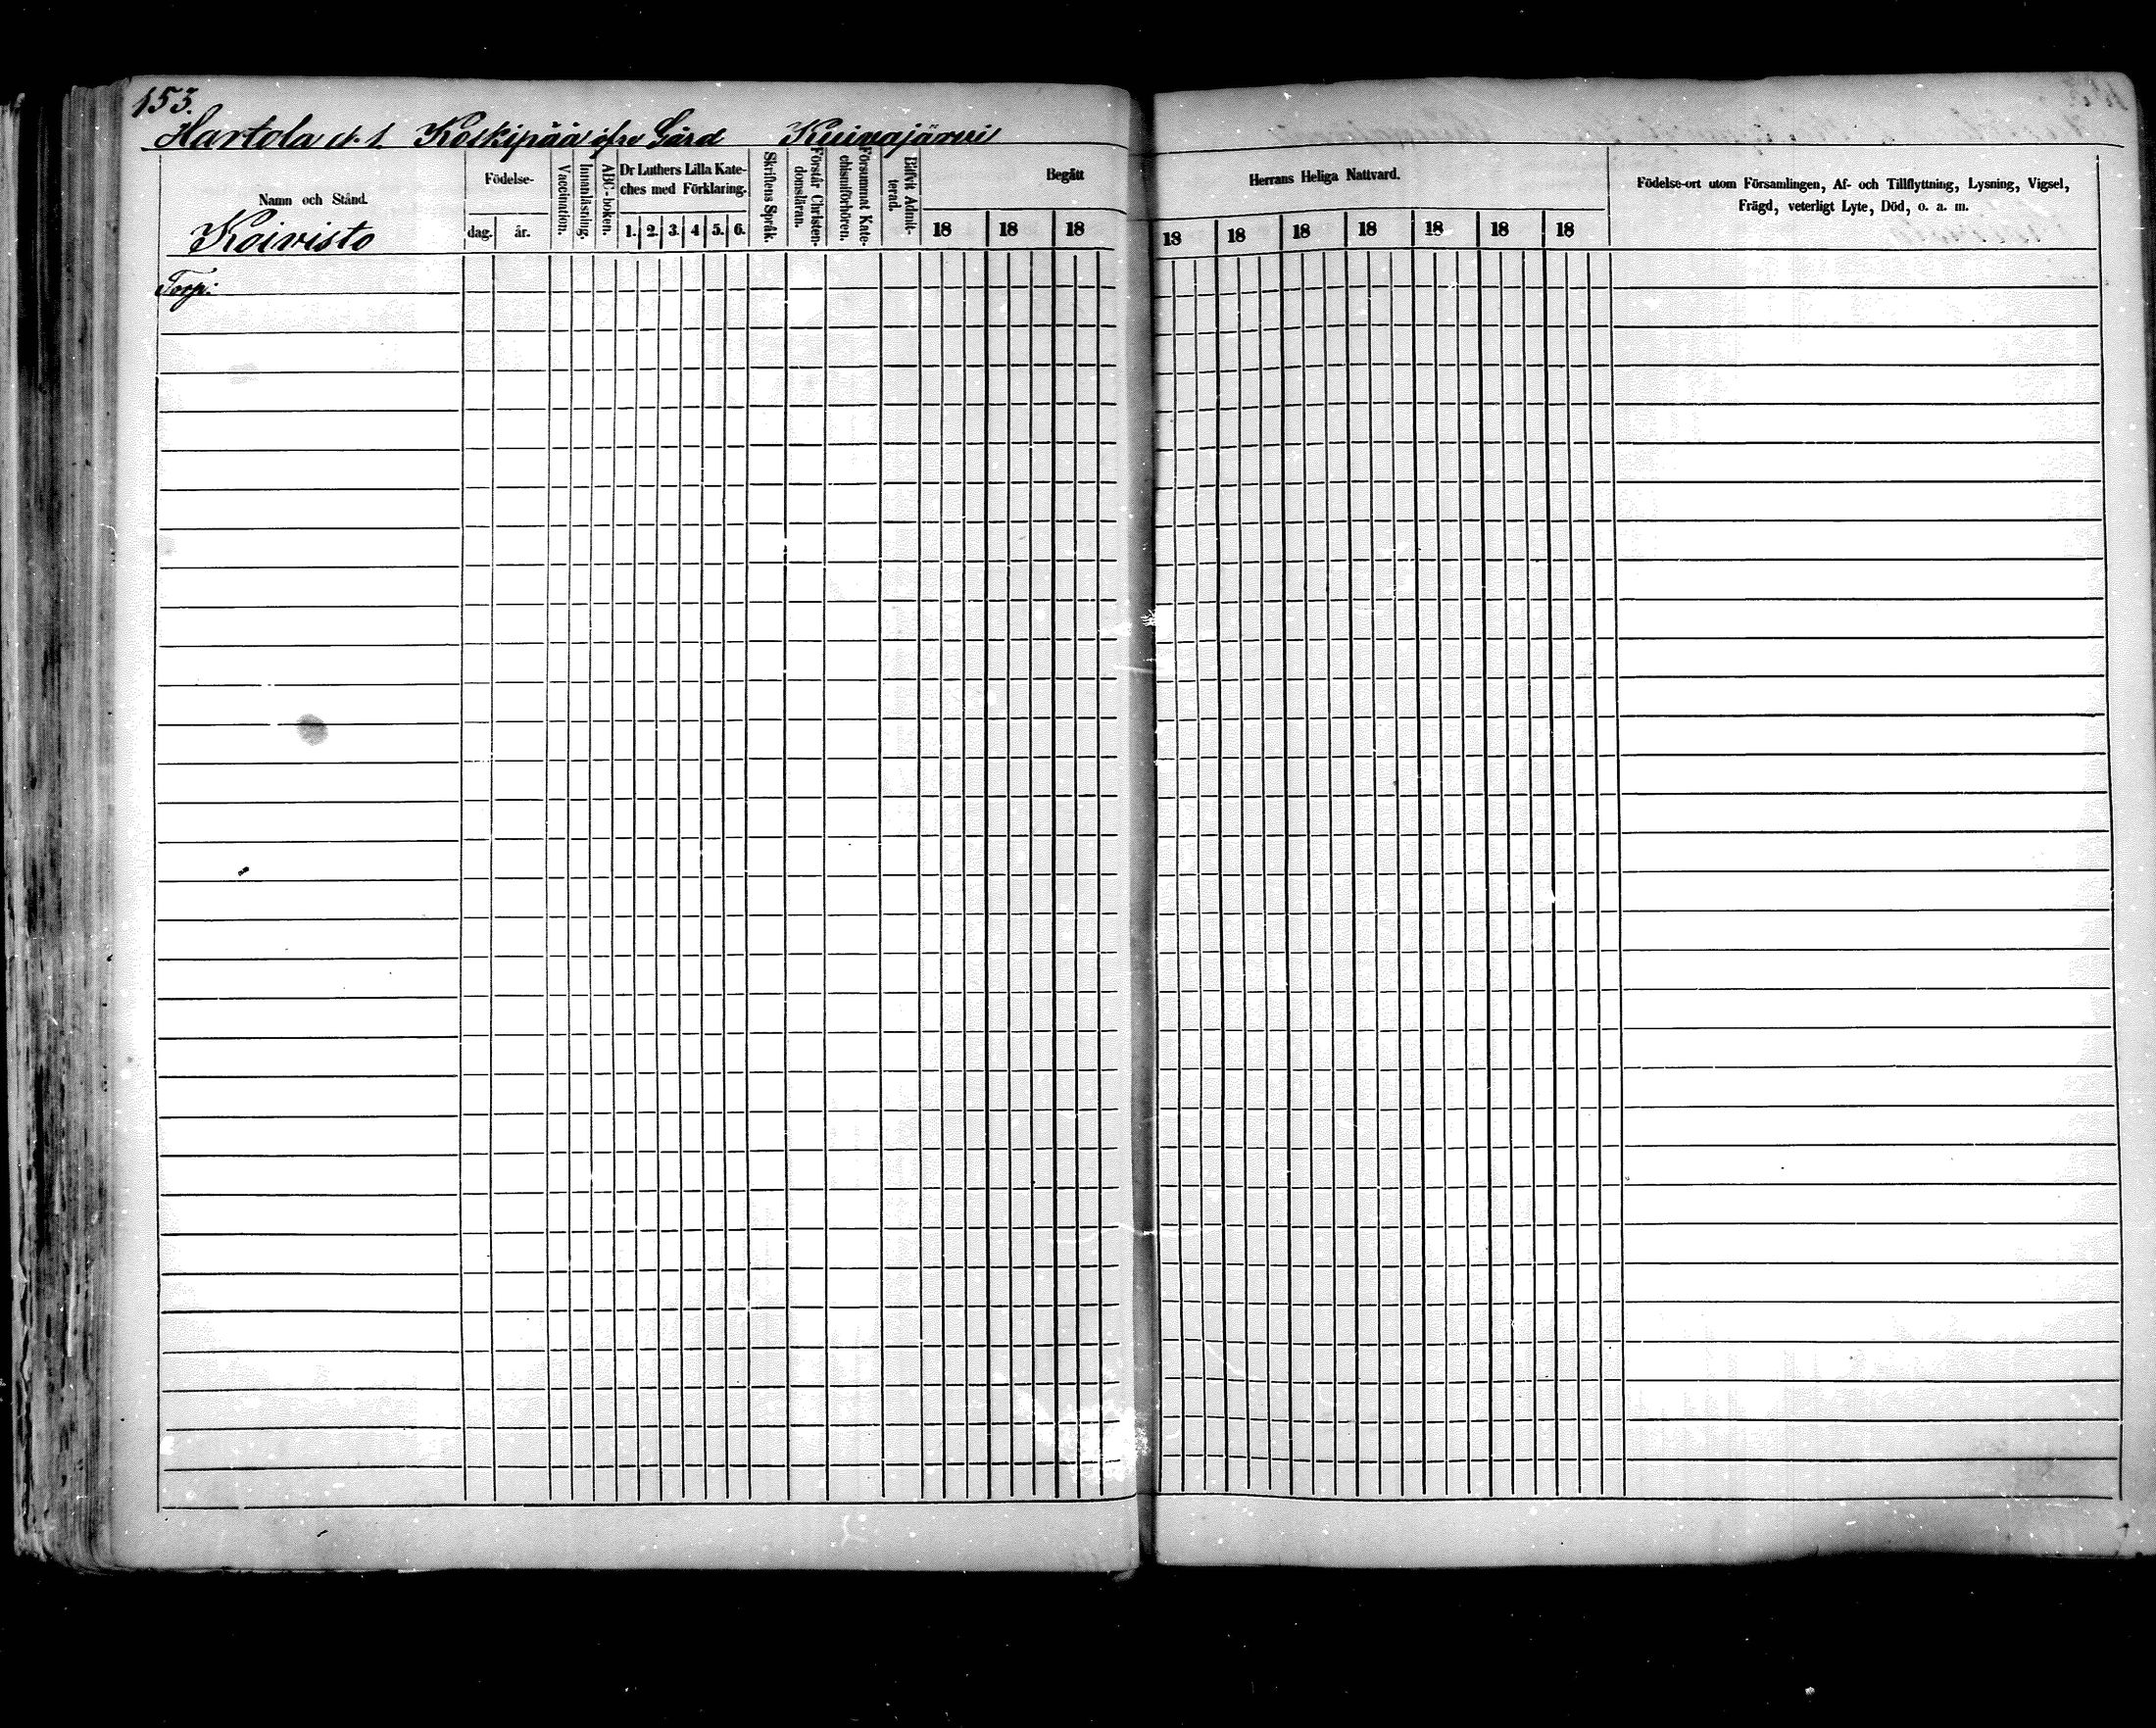 153.
Hartola N:1. Koskipää öfre Gård Kuivajärvi
Namn och Stånd.
Koivisto
Födelse-
dag. år.
Vaccination.
Innanläsning.
ABC-boken.
Dr Luthers Lilla Kate-
ches med Förklaring.
1. 2. 3. 4 5. 6.
Skriftens Språk.
Förstår Christen-
domsläran.
Försummat Kate-
chismiförhören.
Blifvit Admit-
terad.
Begått
18 18 18
Herrans Heliga Nattvard.
18 18 18 18 18 18 18
Födelse-ort utom Församlingen, Af- och Tillflyttning, Lysning, Vigsel,
Frägd, veterligt Lyte, Död, o. a. m.
Torp: